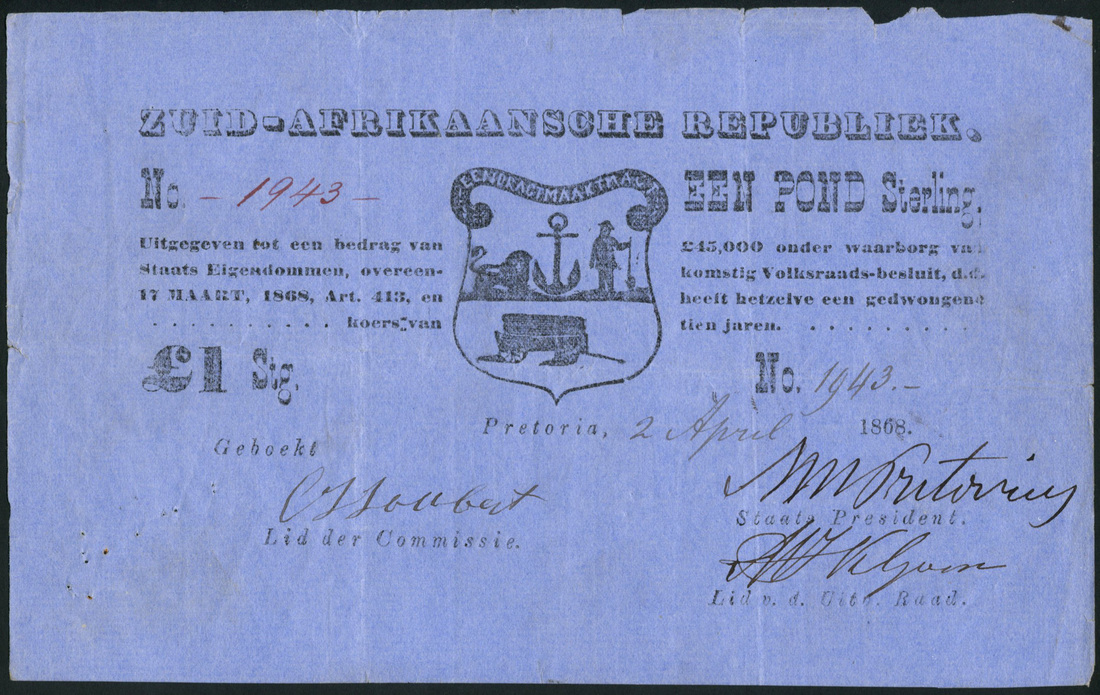 ZUID-AFRIKAANSCHE REPUBLIEK.
No. - 1943 -
EENDRAGT MAAKT MAGT
EEN POND Sterling.
Uitgegeven tot een bedrag van £45,000 onder waarborg van
Staats Eigendommen, overeenkomstig Volksraads-besluit, d.d.
17 MAART, 1868, Art. 413, en heeft hetzelve een gedwongene
. . . . . . . . . . koers van tien jaren. . . . . . . . . . .
£1 Stg.
No. 1943.-
Pretoria, 2 April 1868.
Geboekt
CJ Joubert
MW Pretorius
Lid der Commissie.
Staats President.
Lid v. d. Uitv. Raad.